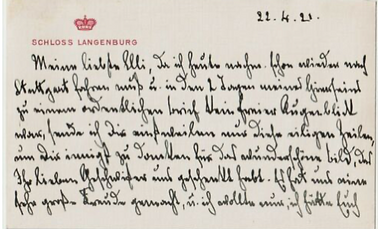 22.4.21.
SCHLOSS LANGENBURG
Meine liebste Elli, da ich heute nachm. schon wieder nach
Stuttgart fahren muß u. in den 2 Tagen meines Hierseins
zu einem ordentlichen Brief kein freier Augenblick
war, sende ich dir einstweilen nur diese eiligen Zeilen,
um dir innigst zu danken für das wunderschöne Bild, das
Ihr lieben Geschwister uns geschenkt habt. Es hat uns eine
sehr große Freude gemacht, u. ich wollte nur, ich hätte Euch